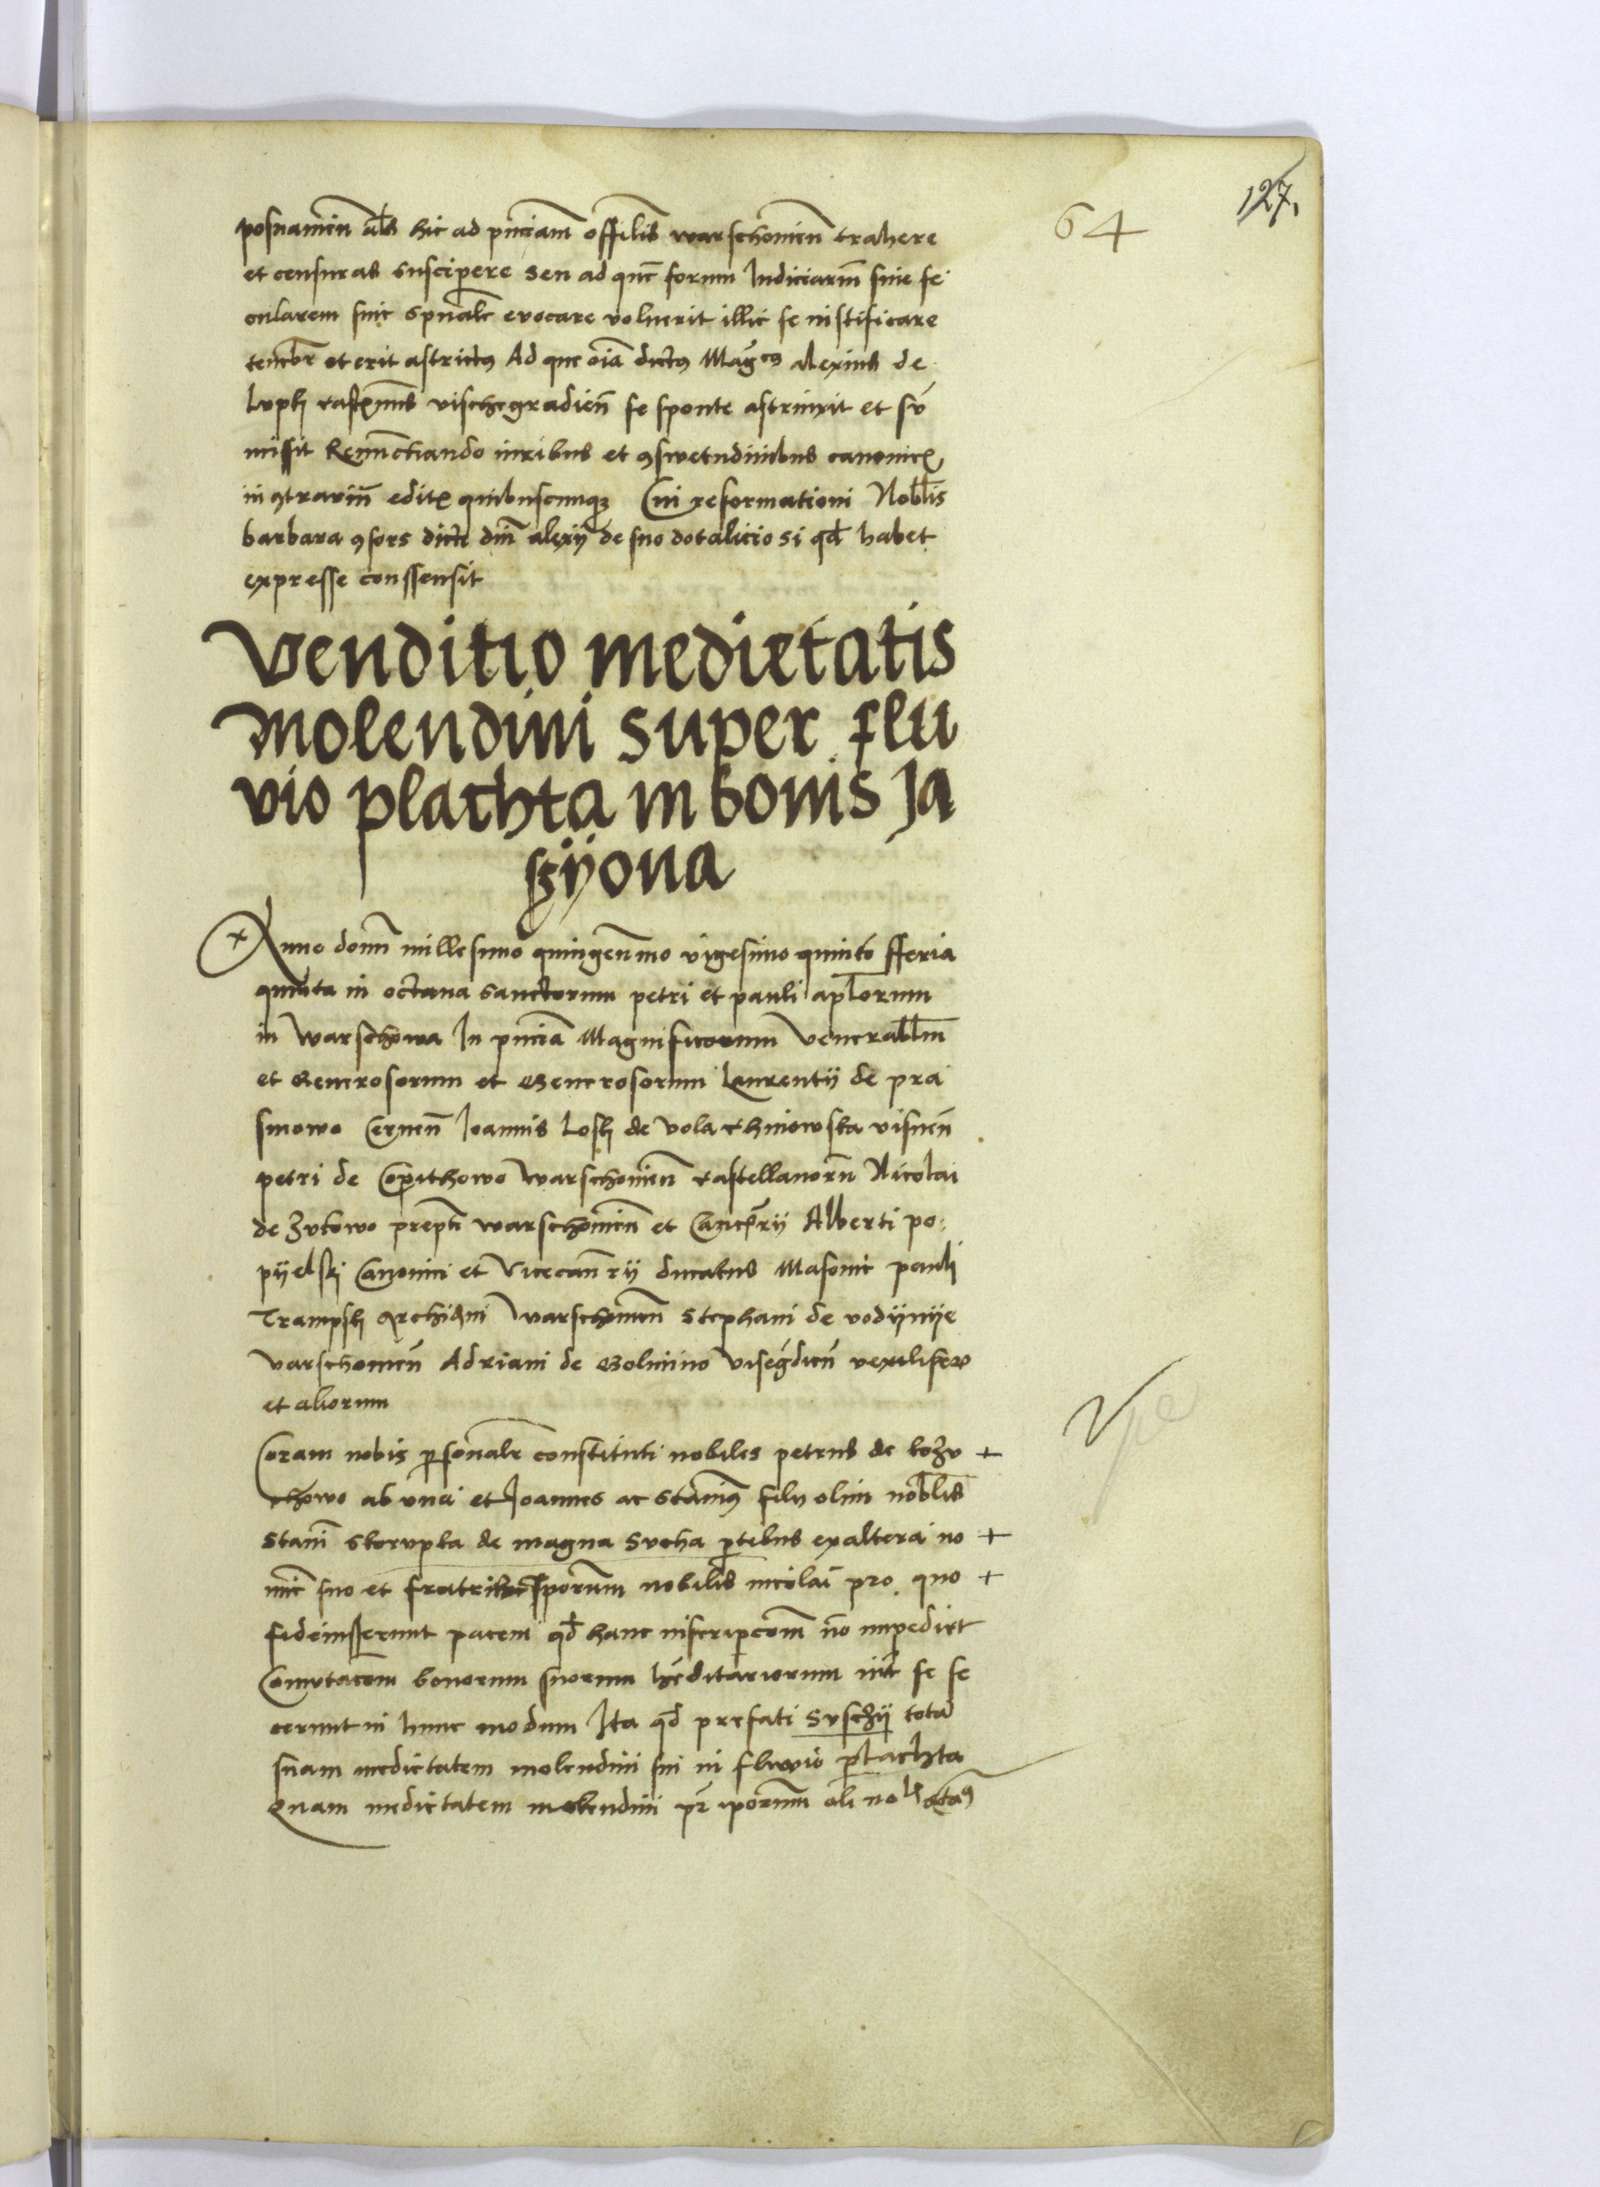 64
127.
posnanien als hic ad pnciam offilis warschouien trahere
et censuras suscipere Seu ad qunc forum Judiciarium siue se
cularem siue spualem evocare voluerit illic se iustificare
tenebr et erit astrictus Ad que oia dictus Magcus alexius de
castnus vischegradien se sponte astrinxit et su
missit Renunctiando iuribus et consuetudinibus canonicis
in contrarium editis quibuscunque Cui reformationi Nobilis
barbara consors dicti dni alexij de suo dotalicio si quod habet
expresse conssensit
Venditio medietatis
Molendini super flu
vio plachta in bonis Ja
szyona
Anno domini millesimo quingenmo vigesimo quinto fferia
quinta in octava sanctorum petri et pauli aplorum
in Warschowa In pncia Magnificorum Venerablium
et Generosorum et Generosorum laurentij de pra
smowo Cernen Joannis Losch de vola visnen
petri de Copithowo Warschouien castellanorum Nicolai
de Zukowo prepti warschouien et Cancrij Alberti po
pyelski Canonici et Vicecanrij ducatus Masouie pauli
Trampsk Archidni Warschouien Stephani de vodynye
Varschouien Adriani de Golmino Visegdien vexilifer
et aliorum
Coram nobis personaliter constituti nobiles petrus de kozu +
chowo ab vna et Joannes ac Stanius filii olim nobilis
Stani Skorupka de magna Sucha partibus ex altera no +
mine suo et fratris ipsorum nobilis nicolai pro quo +
fideiusserunt pacem quod hanc inscripcionem non impediet
Comutacionem bonorum suorum hereditariorum inter se fe
cerunt in hunc modum Ita quod prefati Suschij tota
suam medietatem molendini sui in fluvio plachta
Quam medietatem molendini pr ipsorum oli